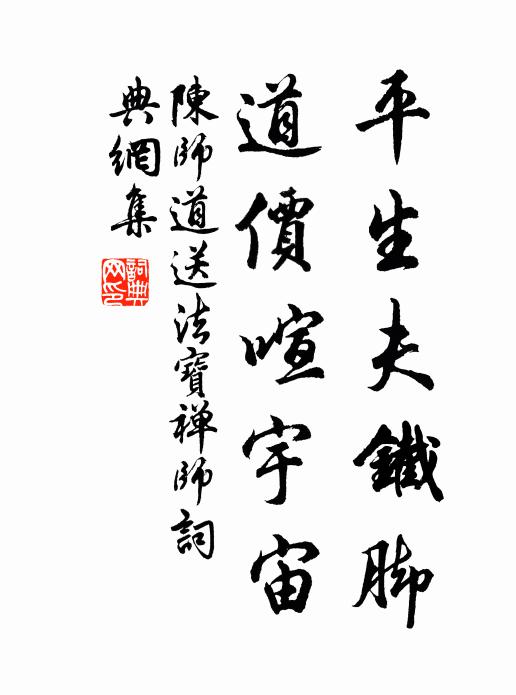 平生夫鐵脚
道價喧宇宙
陳師道送法寶禅師詞
典網集
詞典
网印